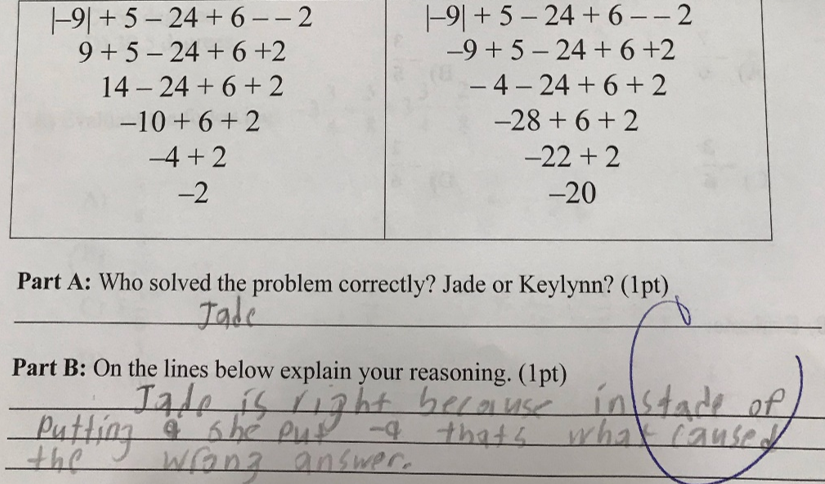 |–9| + 5 – 24 + 6 – – 2
9 + 5 – 24 + 6 +2
14 – 24 + 6 + 2
–10 + 6 + 2
–4 + 2
–2
|–9| + 5 – 24 + 6 – – 2
–9 + 5 – 24 + 6 +2
– 4 – 24 + 6 + 2
–28 + 6 + 2
–22 + 2
–20
Part A: Who solved the problem correctly? Jade or Keylynn? (1pt)
Jade
Part B: On the lines below explain your reasoning. (1pt)
Jade is right because instade of
Putting 9 she put -9 thats what caused
the wrong answer.